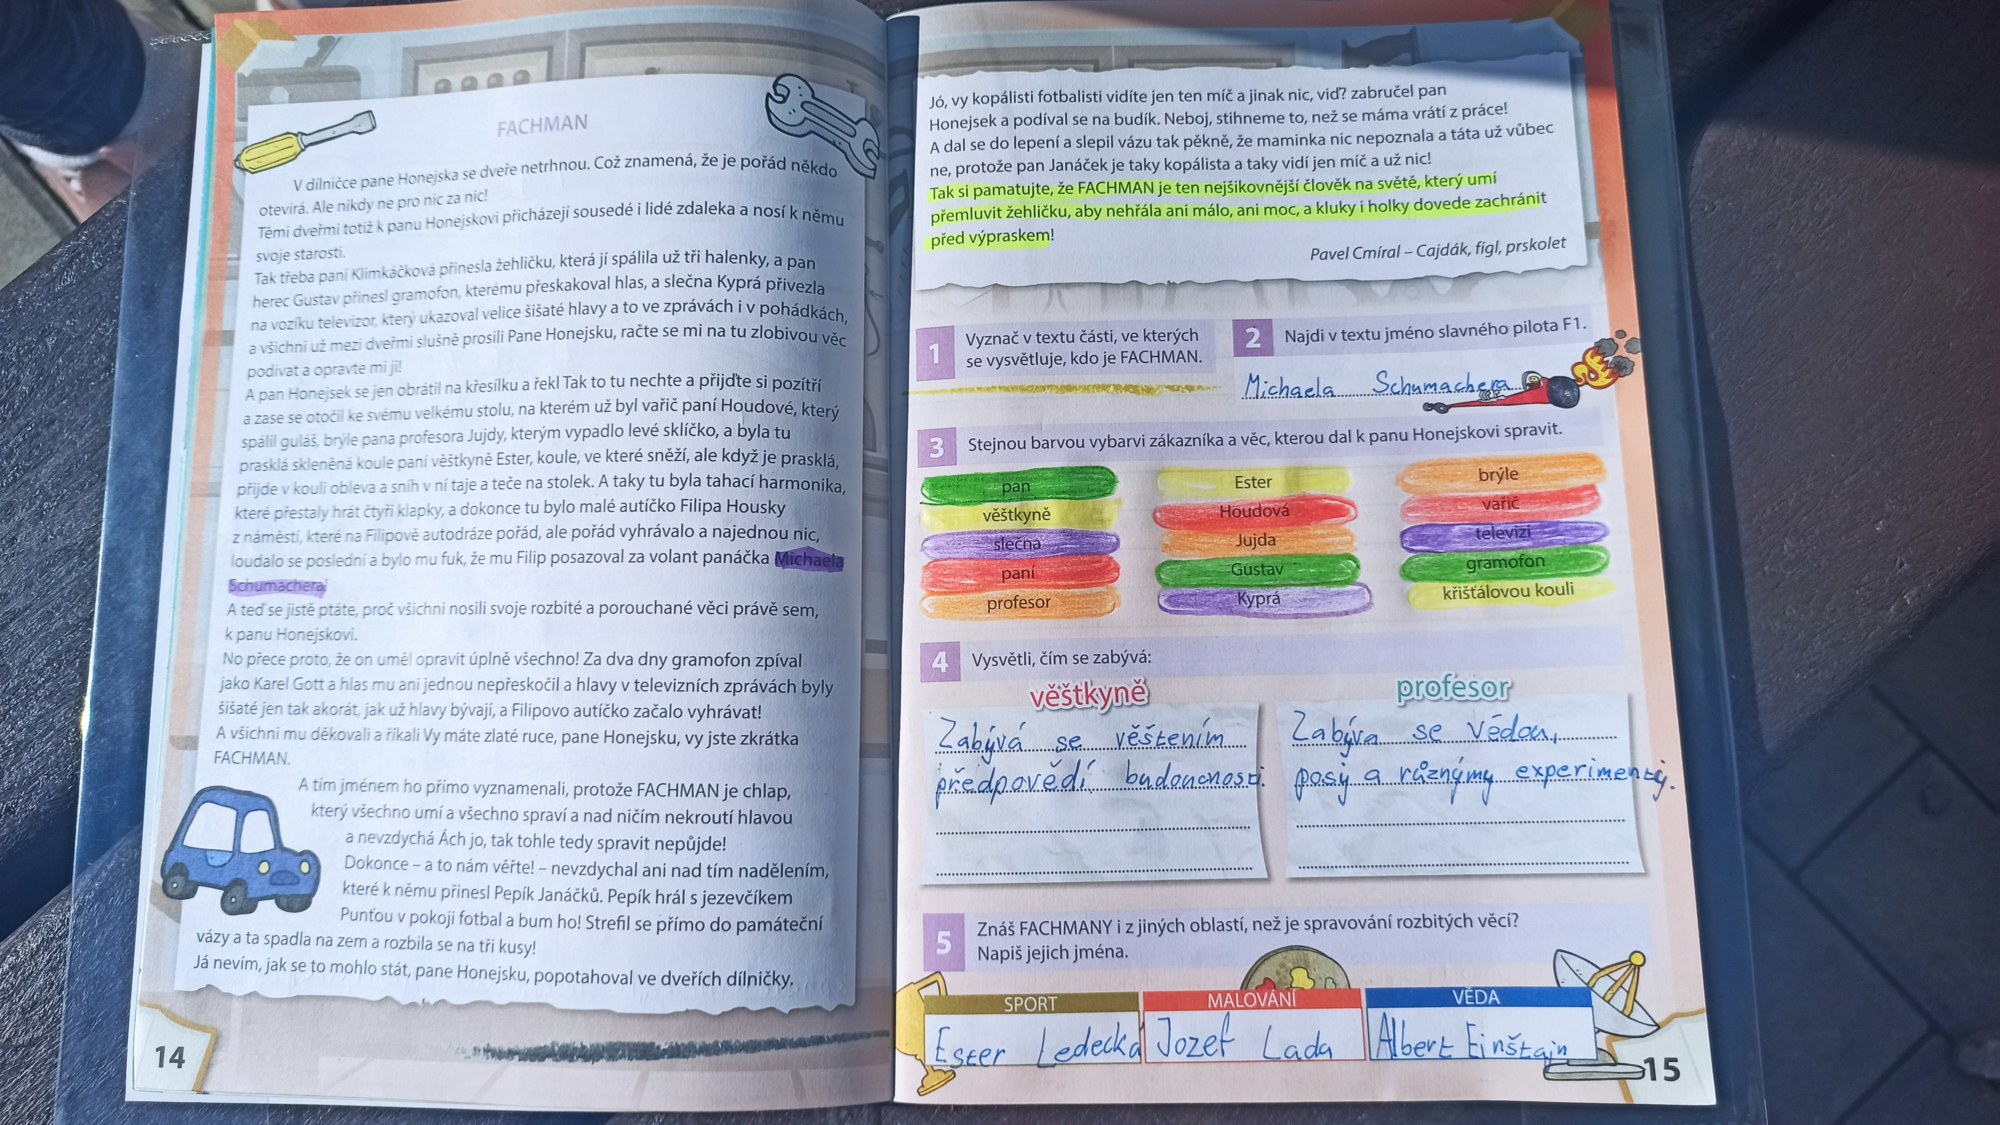 FACHMAN
V dílničce pane Honejska se dveře netrhnou. Což znamená, že je pořád někdo
otevírá. Ale nikdy ne pro nic za nic!
Těmi dveřmi totiž k panu Honejskovi přicházejí sousedé i lidé zdaleka a nosí k němu
svoje starosti.
Tak třeba paní Klimkáčková přinesla žehličku, která jí spálila už tři halenky, a pan
herec Gustav přinesl gramofon, kterému přeskakoval hlas, a slečna Kyprá přivezla
na vozíku televizor, který ukazoval velice šišaté hlavy a to ve zprávách i v pohádkách,
a všichni už mezi dveřmi slušně prosili Pane Honejsku, račte se mi na tu zlobivou věc
podívat a opravte mi ji!
A pan Honejsek se jen obrátil na křesílku a řekl Tak to tu nechte a přijďte si pozítří
a zase se otočil ke svému velkému stolu, na kterém už byl vařič paní Houdové, který
spálil guláš, brýle pana profesora Jujdy, kterým vypadlo levé sklíčko, a byla tu
prasklá skleněná koule paní věštkyně Ester, koule, ve které sněží, ale když je prasklá,
přijde v kouli obleva a sníh v ní taje a teče na stolek. A taky tu byla tahací harmonika,
které přestaly hrát čtyři klapky, a dokonce tu bylo malé autíčko Filipa Housky
z náměstí, které na Filipově autodráze pořád, ale pořád vyhrávalo a najednou nic,
loudalo se poslední a bylo mu fuk, že mu Filip posazoval za volant panáčka Michaela
Schumachera!
A teď se jistě ptáte, proč všichni nosili svoje rozbité a porouchané věci právě sem,
k panu Honejskovi.
No přece proto, že on uměl opravit úplně všechno! Za dva dny gramofon zpíval
jako Karel Gott a hlas mu ani jednou nepřeskočil a hlavy v televizních zprávách byly
šišaté jen tak akorát, jak už hlavy bývají, a Filipovo autíčko začalo vyhrávat!
A všichni mu děkovali a říkali Vy máte zlaté ruce, pane Honejsku, vy jste zkrátka
FACHMAN.
A tím jménem ho přímo vyznamenali, protože FACHMAN je chlap,
který všechno umí a všechno spraví a nad ničím nekroutí hlavou
a nevzdychá Ách jo, tak tohle tedy spravit nepůjde!
Dokonce – a to nám věřte! – nevzdychal ani nad tím nadělením,
které k němu přinesl Pepík Janáčků. Pepík hrál s jezevčíkem
Punťou v pokoji fotbal a bum ho! Strefil se přímo do památeční
vázy a ta spadla na zem a rozbila se na tři kusy!
Já nevím, jak se to mohlo stát, pane Honejsku, popotahoval ve dveřích dílničky.
14
Jó, vy kopálisti fotbalisti vidíte jen ten míč a jinak nic, viď? zabručel pan
Honejsek a podíval se na budík. Neboj, stihneme to, než se máma vrátí z práce!
A dal se do lepení a slepil vázu tak pěkně, že maminka nic nepoznala a táta už vůbec
ne, protože pan Janáček je taky kopálista a taky vidí jen míč a už nic!
Tak si pamatujte, že FACHMAN je ten nejšikovnější člověk na světě, který umí
přemluvit žehličku, aby nehřála ani málo, ani moc, a kluky i holky dovede zachránit
před výpraskem!
Pavel Cmíral – Cajdák, fígl, prskolet
1 Vyznač v textu části, ve kterých
se vysvětluje, kdo je FACHMAN.
2 Najdi v textu jméno slavného pilota F1.
Michaela Schumachera
3 Stejnou barvou vybarvi zákazníka a věc, kterou dal k panu Honejskovi spravit.
pan Ester brýle
věštkyně Houdová vařič
slečna Jujda televizi
paní Gustav gramofon
profesor Kyprá křišťálovou kouli
4 Vysvětli, čím se zabývá:
věštkyně
Zabývá se věštením
předpovědí budoucnosti.
profesor
Zabýva se vědou,
posý a různýmy experimentý.
5 Znáš FACHMANY i z jiných oblastí, než je spravování rozbitých věcí?
Napiš jejich jména.
SPORT MALOVÁNÍ VĚDA
Ester Ledecká Jozef Lada Albert Einštajn
15